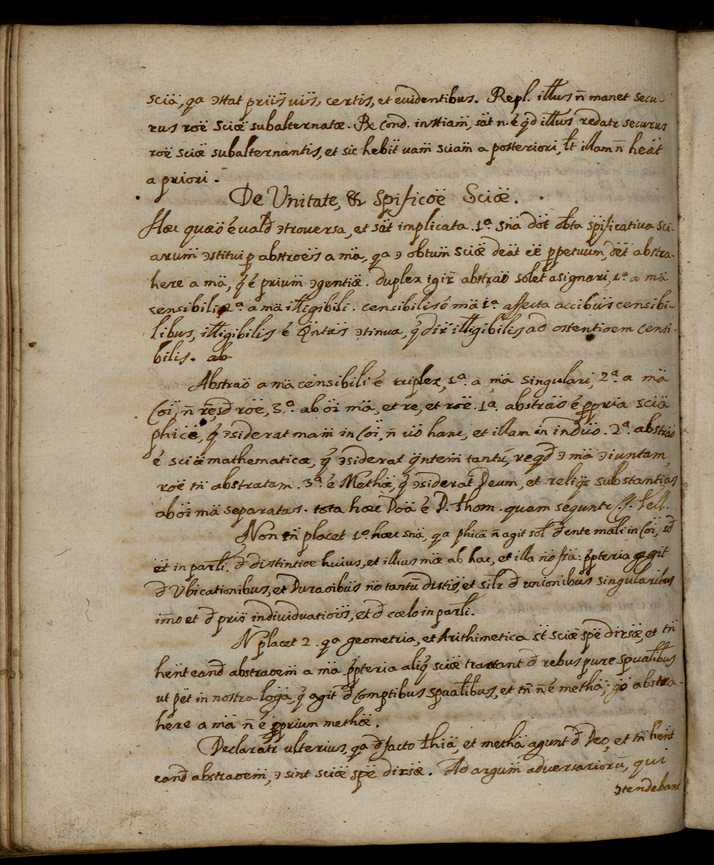 sciä, qa ɔstat priïs uiïs, certis, et euidentibus. Repl. illius n̄ manet secu-
rus roë sciæ subalternatæ. Re Cond. insttiam̄, sat n. é q̄d illius redatr securus
roë sciæ subalternantis, et sic hebit uam̄ sciam̄ a posteriori, łt illam n̄ heät
a priori.
De Unitate, & Spificoë Sciæ.
Hæc quæö é vald̄ ɔtrouersa, et sat implicata. 1ª. sñä dët obta spificatiua sci-
arum̄ ɔstitui p abstroës a mä, qa ɔ obtum̄ sciæ deät eë ppetuum̄, dët abstra-
here a mä, q̄ é prium̄ ɔgentiæ. Duplex igir̄ abstraö solet asignari, 1ª. a mä
censibili, 2ª. a mä illigibili. censibilis é mä 1ª. affecta accibus censibi-
libus, illigibilis é q̄ntäs ɔtinua, q̄ dir̄ illigibilis ad ostentioem censi-
bilis. ab
Abstraö a mä censibili é triplex, 1ª. a mä singulari, 2ª. a mä
Coï, n̄ resd roë, 3ª. ab oï mä, et re, et roë. 1ª. abstraö é ppria sciæ
phicæ, q̄ ɔsiderat mam̄ in Coï, n̄ uö hanc, et illam in induö. 2ª. abstraö
é sciæ mathematicæ, q̄ ɔsiderat q̄ntem̄ tantu᷑, reqd̄ ɔ mä ɔiuntam,
roë tn̄ abstratam. 3ª. é Methæ, q̄ ɔsiderat Deum, et reliq̄s substantias
ab oï mä separatas. tota hæc Doä é D. Thom. quam seguntr
Non tn̄ placet 1º. hæc snä, qa phicä n̄ agit sol d̄ ente mäli in Coï, sd̄
et in parli. d̄ distintioe huius, et illius mæ ab hac, et illa no ppteria agit
d̄ Vbicationibus, et Duraoibus no tantu᷑ distis, et silr d̄ unionibus singularibus
imo et d̄ prio indiuiduatiois, et d̄ cælo in parli.
N placet 2. qa geometria, et Arithimetica st sciæ spë dirsæ, et tn̄
hent eand abstraoem̄ a mä. ppteria aliq̄ sciæ tractant d̄ rebus pure spualibus
ut pët in nostra logä, q̄ agit d̄ Comptibus spualibus, et tn̄ n̄ é methä, qö abstra-
here a mä n̄ é pprium methæ.
Declaratr ulterius, qa d̄ facto thiä, et methä agunt d̄ Deo, et tn̄ hent
eand abstraoem̄, ɔ sint sciæ spë dirsæ. Ad argum̄ aduersarioru᷑, qui
ɔtendebant